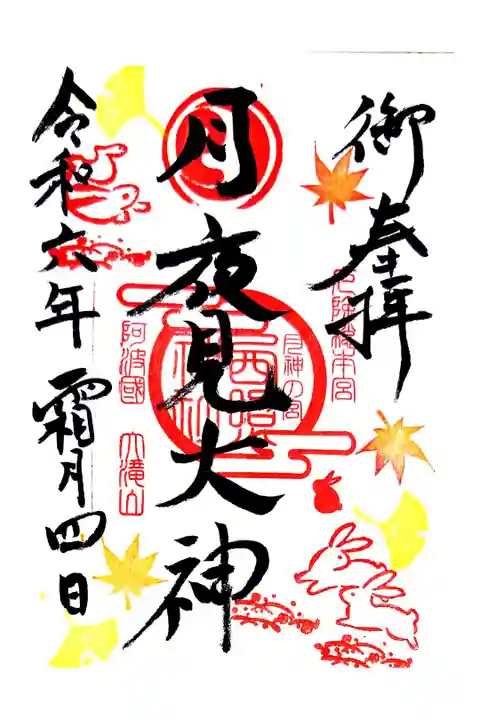 御奉拝
厄除総本宮
月神の宮
月夜見大神
西照神社
阿波國
大滝山
令和六年霜月四日